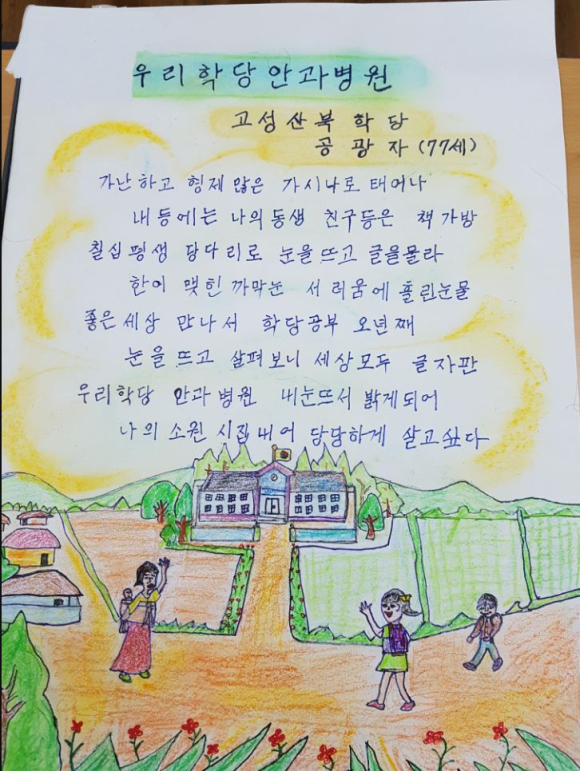 우리학당안과병원
고성산북 학당
공광자 (77세)
가난하고 형제 많은 가시나로 태어나
내 등에는 나의 동생 친구등은 책 가방
칠십평생 당다리로 눈을 뜨고 글을몰라
한이 맺힌 까막눈 서러움에 흘린눈물
좋은세상 만나서 학당공부 오년째
눈을 뜨고 살펴보니 세상모두 글자판
우리학당 안과 병원 내눈뜨서 밝게되어
나의 소원 시집내어 당당하게 살고싶다